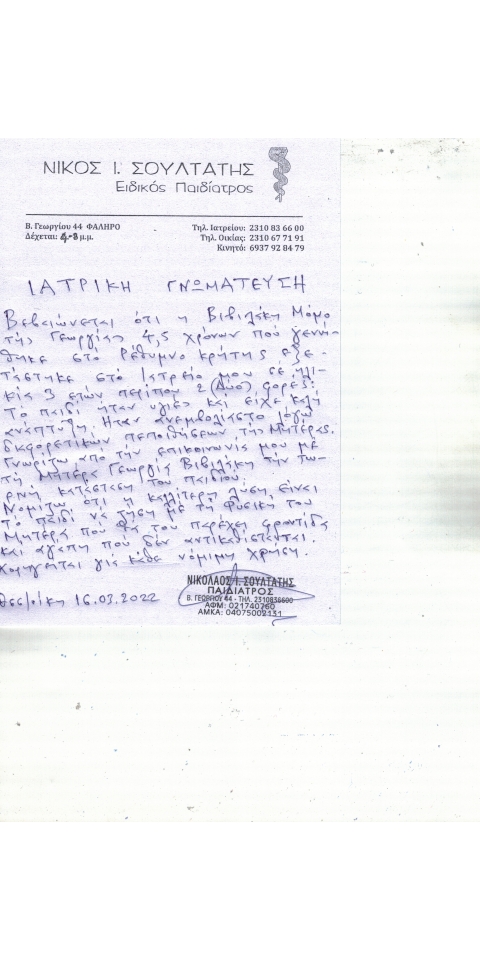 ΝΙΚΟΣ Ι. ΣΟΥΛΤΑΤΗΣ
Ειδικός Παιδίατρος
Β. Γεωργίου 44 ΦΑΛΗΡΟ
Δέχεται: 4-8 μ.μ.
Τηλ. Ιατρείου: 2310 83 66 00
Τηλ. Οικίας: 2310 67 71 91
Κινητό: 6937 92 84 79
ΙΑΤΡΙΚΗ ΓΝΩΜΑΤΕΥΣΗ
Βεβαιώνεται ότι η Βιβιλάκη Μόμο
της Γεωργίας 4,5 χρόνων πού γεννή-
θηκε στο Ρέθυμνο κρήτης εξε-
τάστηκε στο Ιατρείο μου σε ηλι-
κία 3 ετών περίπου 2 (Δύο) φορές.
Το παιδί ήταν υγιές και είχε καλή
ανάπτυξη. Ήταν ανεμβολίαστο λόγω
διαφορετικών πεποιθήσεων της Μητέρας.
Γνωρίζω απο την επικοινωνία μου με
τη Μητέρα Γεωργία Βιβιλάκη την τω-
ρινή κατάσταση του παιδιού.
Νομίζω ότι η καλλίτερη λύση είναι
το παιδί να ζήση με τη φυσική του
Μητέρα που θα του παρέχει φροντίδα
και αγάπη που δέν αντικαθίστανται.
Χορηγείται για κάθε νόμιμη χρήση.
Θεσ/νίκη 16.03.2022
ΝΙΚΟΛΑΟΣ Ι. ΣΟΥΛΤΑΤΗΣ
ΠΑΙΔΙΑΤΡΟΣ
Β. ΓΕΩΡΓΙΟΥ 44 - ΤΗΛ. 2310836600
ΑΦΜ: 021740260
ΑΜΚΑ: 04075002131